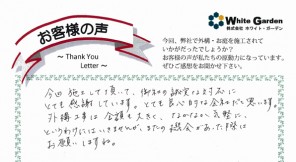 お客様の声
～ Thank You
Letter ～
White Garden
株式会社 ホワイト・ガーデン
今回、弊社で外構・お庭を施工されて
いかがだったでしょうか？
お客様の声が私たちの原動力になっています。
ぜひご感想をお聞かせ下さい。
今回施工して頂いて、御社の誠実な対応に
とても感謝しています。とても良い会社だと思います。
外構工事は金額も大きく、なかなか気軽に、
というわけにはいきませんが、またの機会があった際は
お願いしますね。